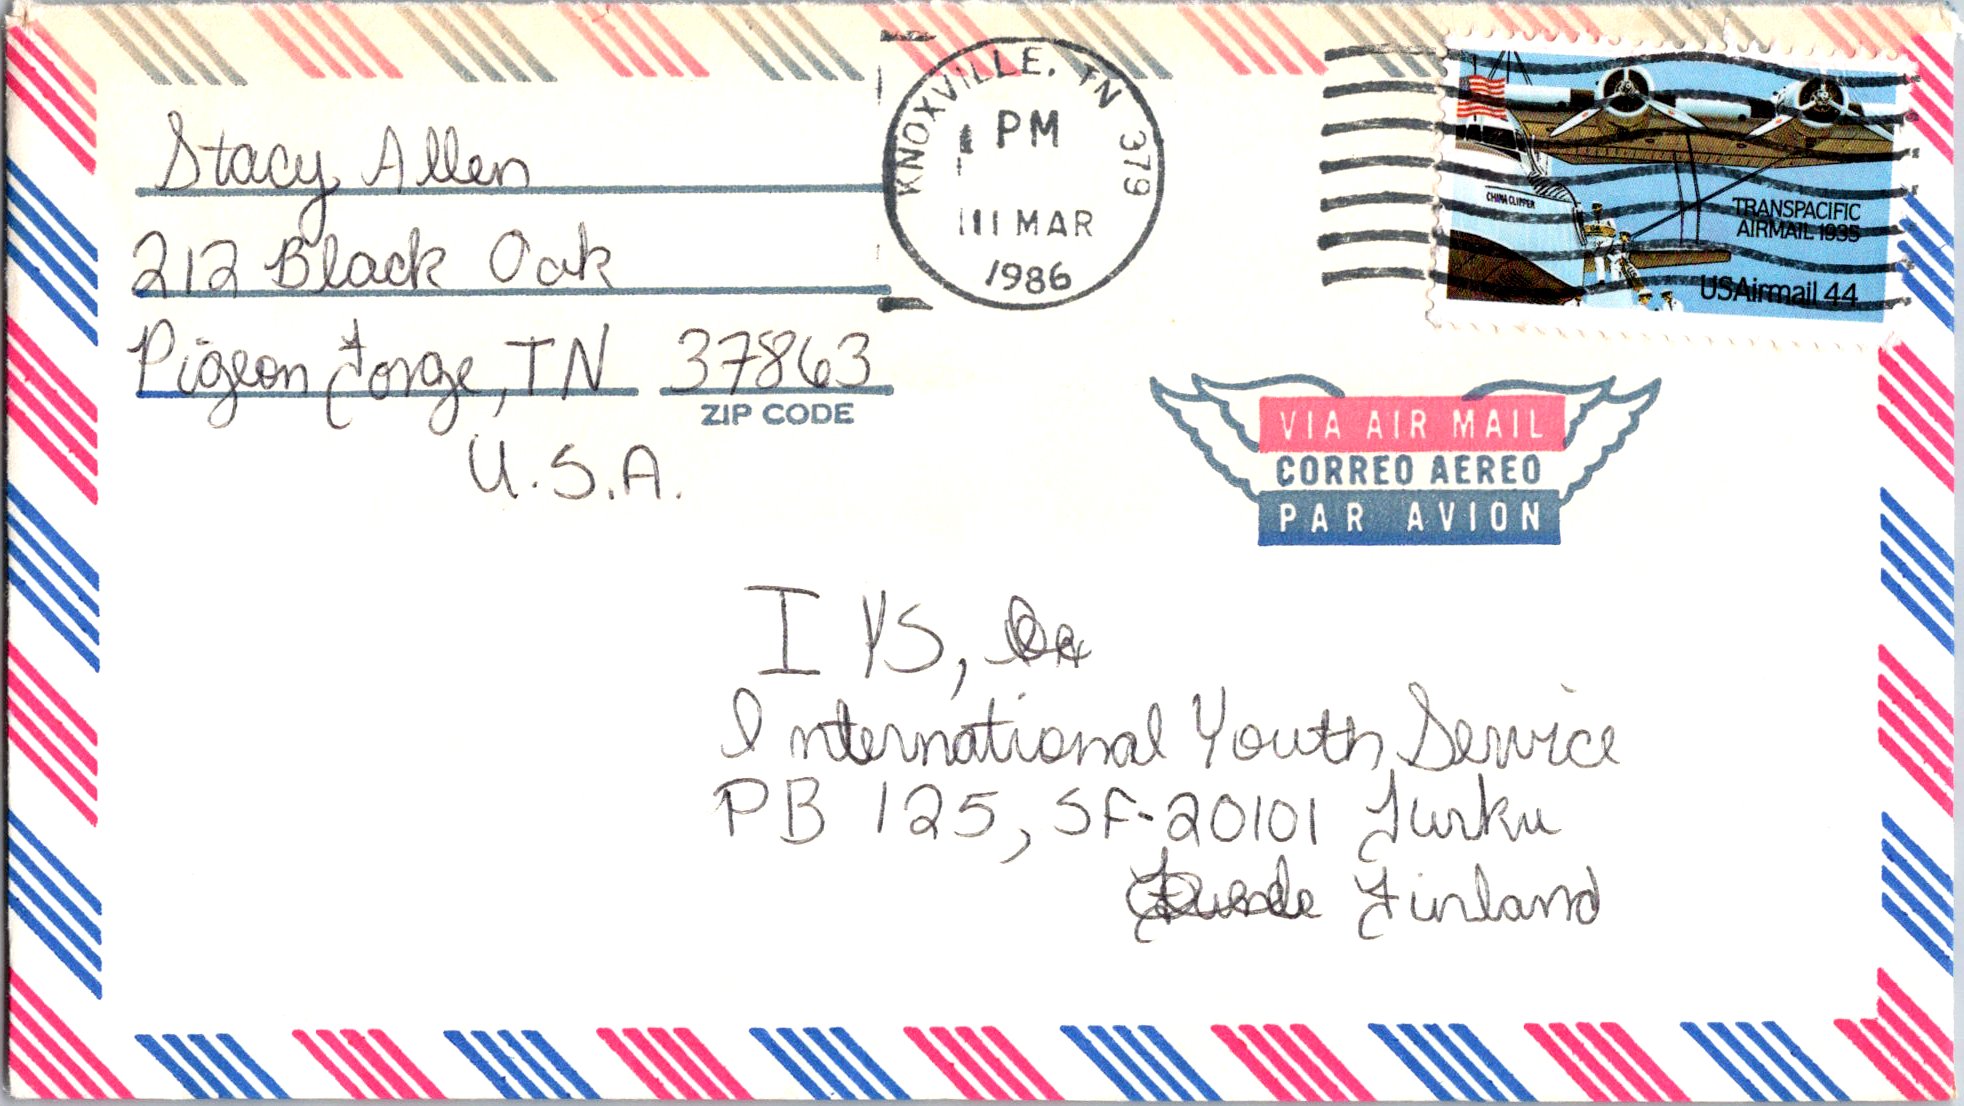 Stacy Allen
212 Black Oak
Pigeon Forge, TN 37863
ZIP CODE
U.S.A.
KNOXVILLE, TN 379
PM
11 MAR
1986
CHINA CLIPPER
TRANSPACIFIC
AIRMAIL 1935
USAirmail 44
VIA AIR MAIL
CORREO AEREO
PAR AVION
I YS,
International Youth Service
PB 125, SF-20101 Turku
Finland